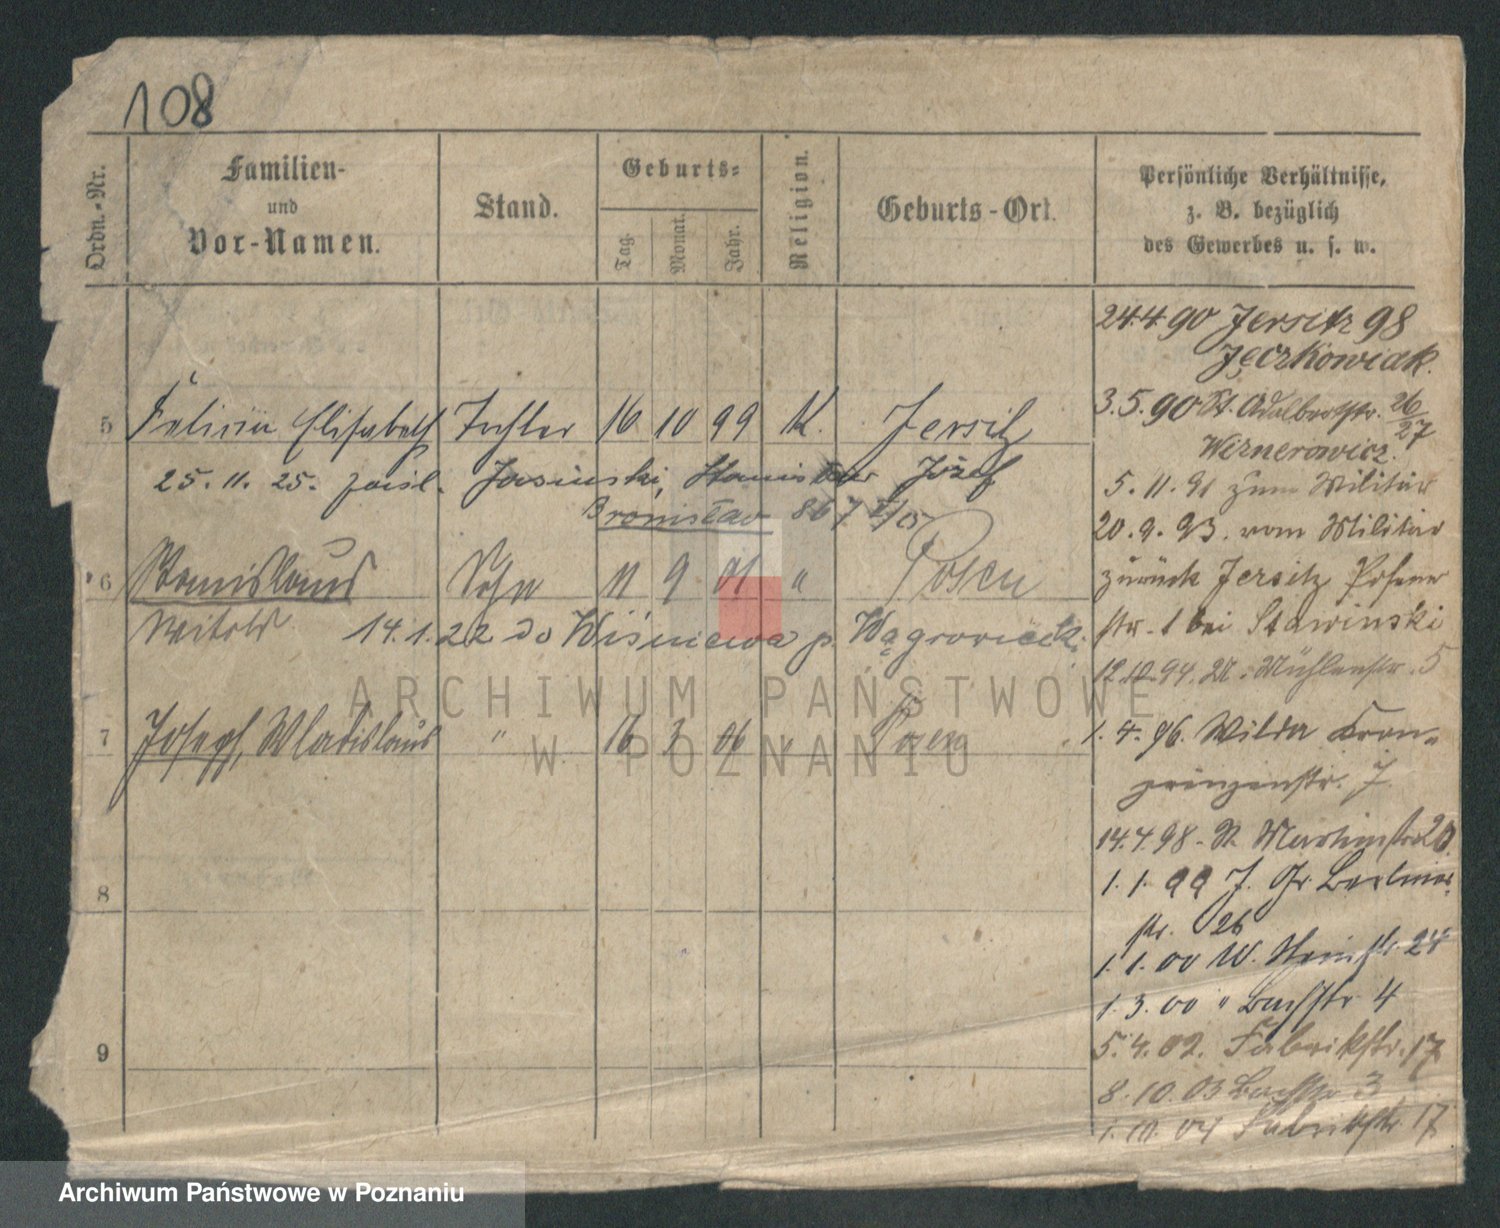 108
Ordn.-Nr.
Familien-
und
Vor-Namen.
Stand.
Geburts-
Tag.
Monat.
Jahr.
Religion.
Geburts-Ort.
Persönliche Verhältnisse,
z. B. bezüglich
des Gewerbes u. s. w.
5 Felicia Elisabeth Tochter 16 10 99 K. Jersitz
25. 11. 25. Jasinski, Stanisław Józef
Bronisław
6 Stanislaus Sohn 11 9 01 " Posen
Witold 14.1.22 do Wiśniewa p. Wągrowieck.
7 Joseph, Wladislaus " 16 3 06 " Posen
8
9
24.4.90 Jersitz 98
Jęczkowiak.
3.5.90 St. Adalbertstr. 26/27
Wiznerowicz.
5.11.91 zum Militär
20.9.93. vom Militär
zurück Jersitz Posener
str. 1 bei Stawinski
12.10.94. Mühlenstr. 5
1.4.96. Wilda Kron-
prinzenstr. 7
14.4.98. St. Martinstr 20
1.1.99 J. Gr. Berliner
str. 26
1.1.00 W. 24
1.3.00 " Bachstr 4
5.4.02. Fabrikstr. 17
8.10.03 Bachstr 3
1.10.04 Fabrikstr. 17
ARCHIWUM PAŃSTWOWE
W POZNANIU
Archiwum Państwowe w Poznaniu